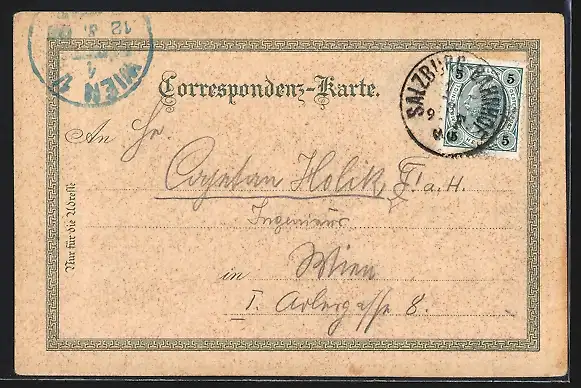 WIEN 1/1
12. 8.
Correspondenz-Karte.
SALZBURG BAHNHOF
9
5 5
5 5
An Hr.
Cajetan Holik, F! a. H.
Ingenieur
in Wien
I. Adlergasse 8.
Nur für die Adresse